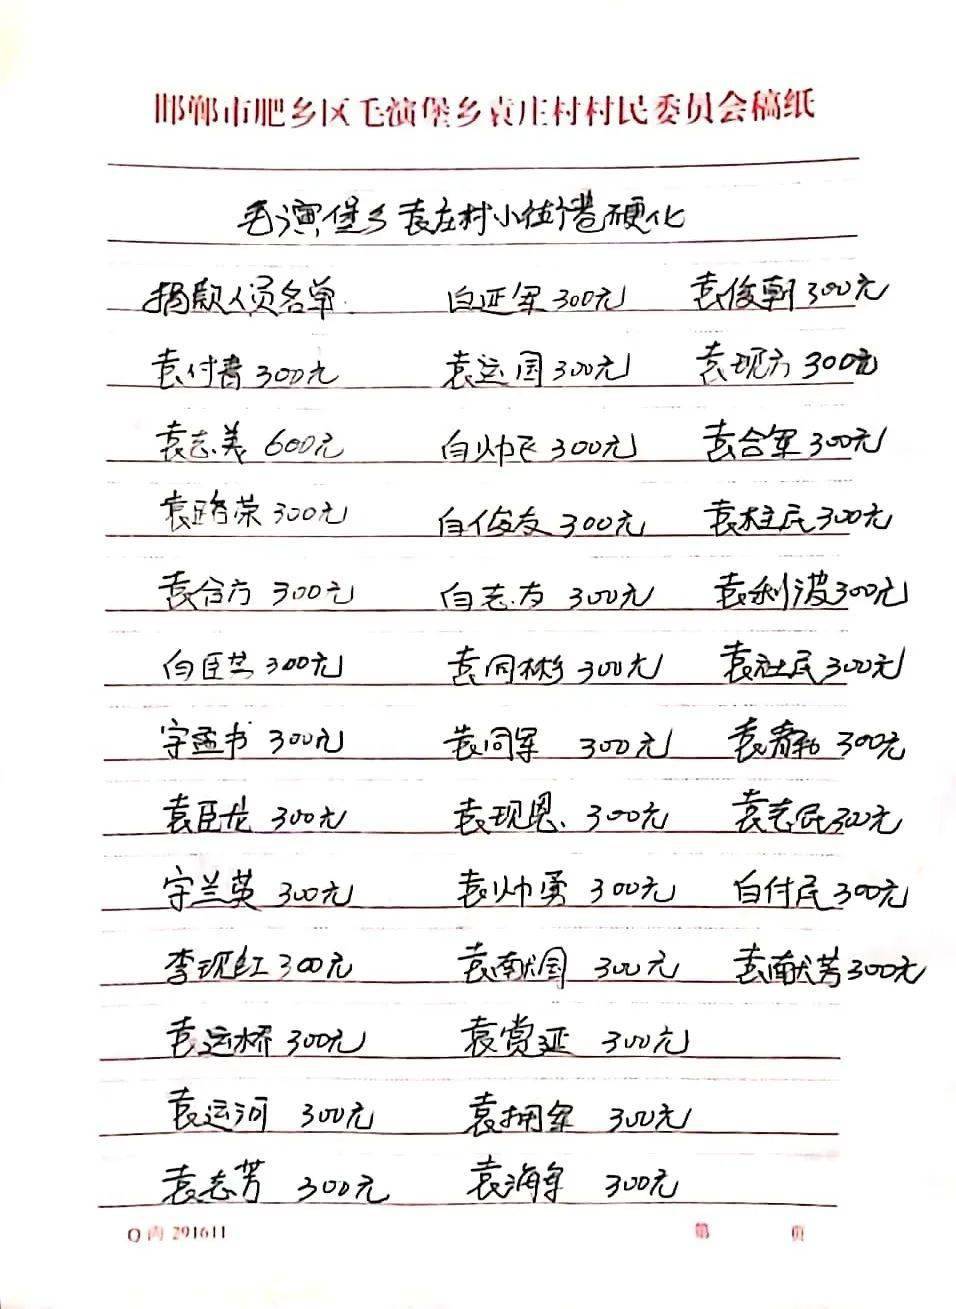 邯郸市肥乡区毛演堡乡袁庄村村民委员会稿纸
毛演堡乡袁庄村小街巷硬化
捐款人员名单 白延军300元 袁俊朝300元
袁付青300元 袁运国300元 袁现方300元
袁志美600元 白帅飞300元 袁合军300元
袁路荣300元 白俊友300元 袁柱民300元
袁合方300元 白志方300元 袁利波300元
白臣芝300元 袁同彬300元 袁社民300元
孟书300元 袁同军300元 袁静300元
袁臣龙300元 袁现恩300元 袁志民300元
兰英300元 袁帅勇300元 白付民300元
李现红300元 袁献国300元 袁献芳300元
袁运桥300元 袁赏延300元
袁运河300元 袁拥军300元
袁志芳300元 袁海军300元
291611 第 页